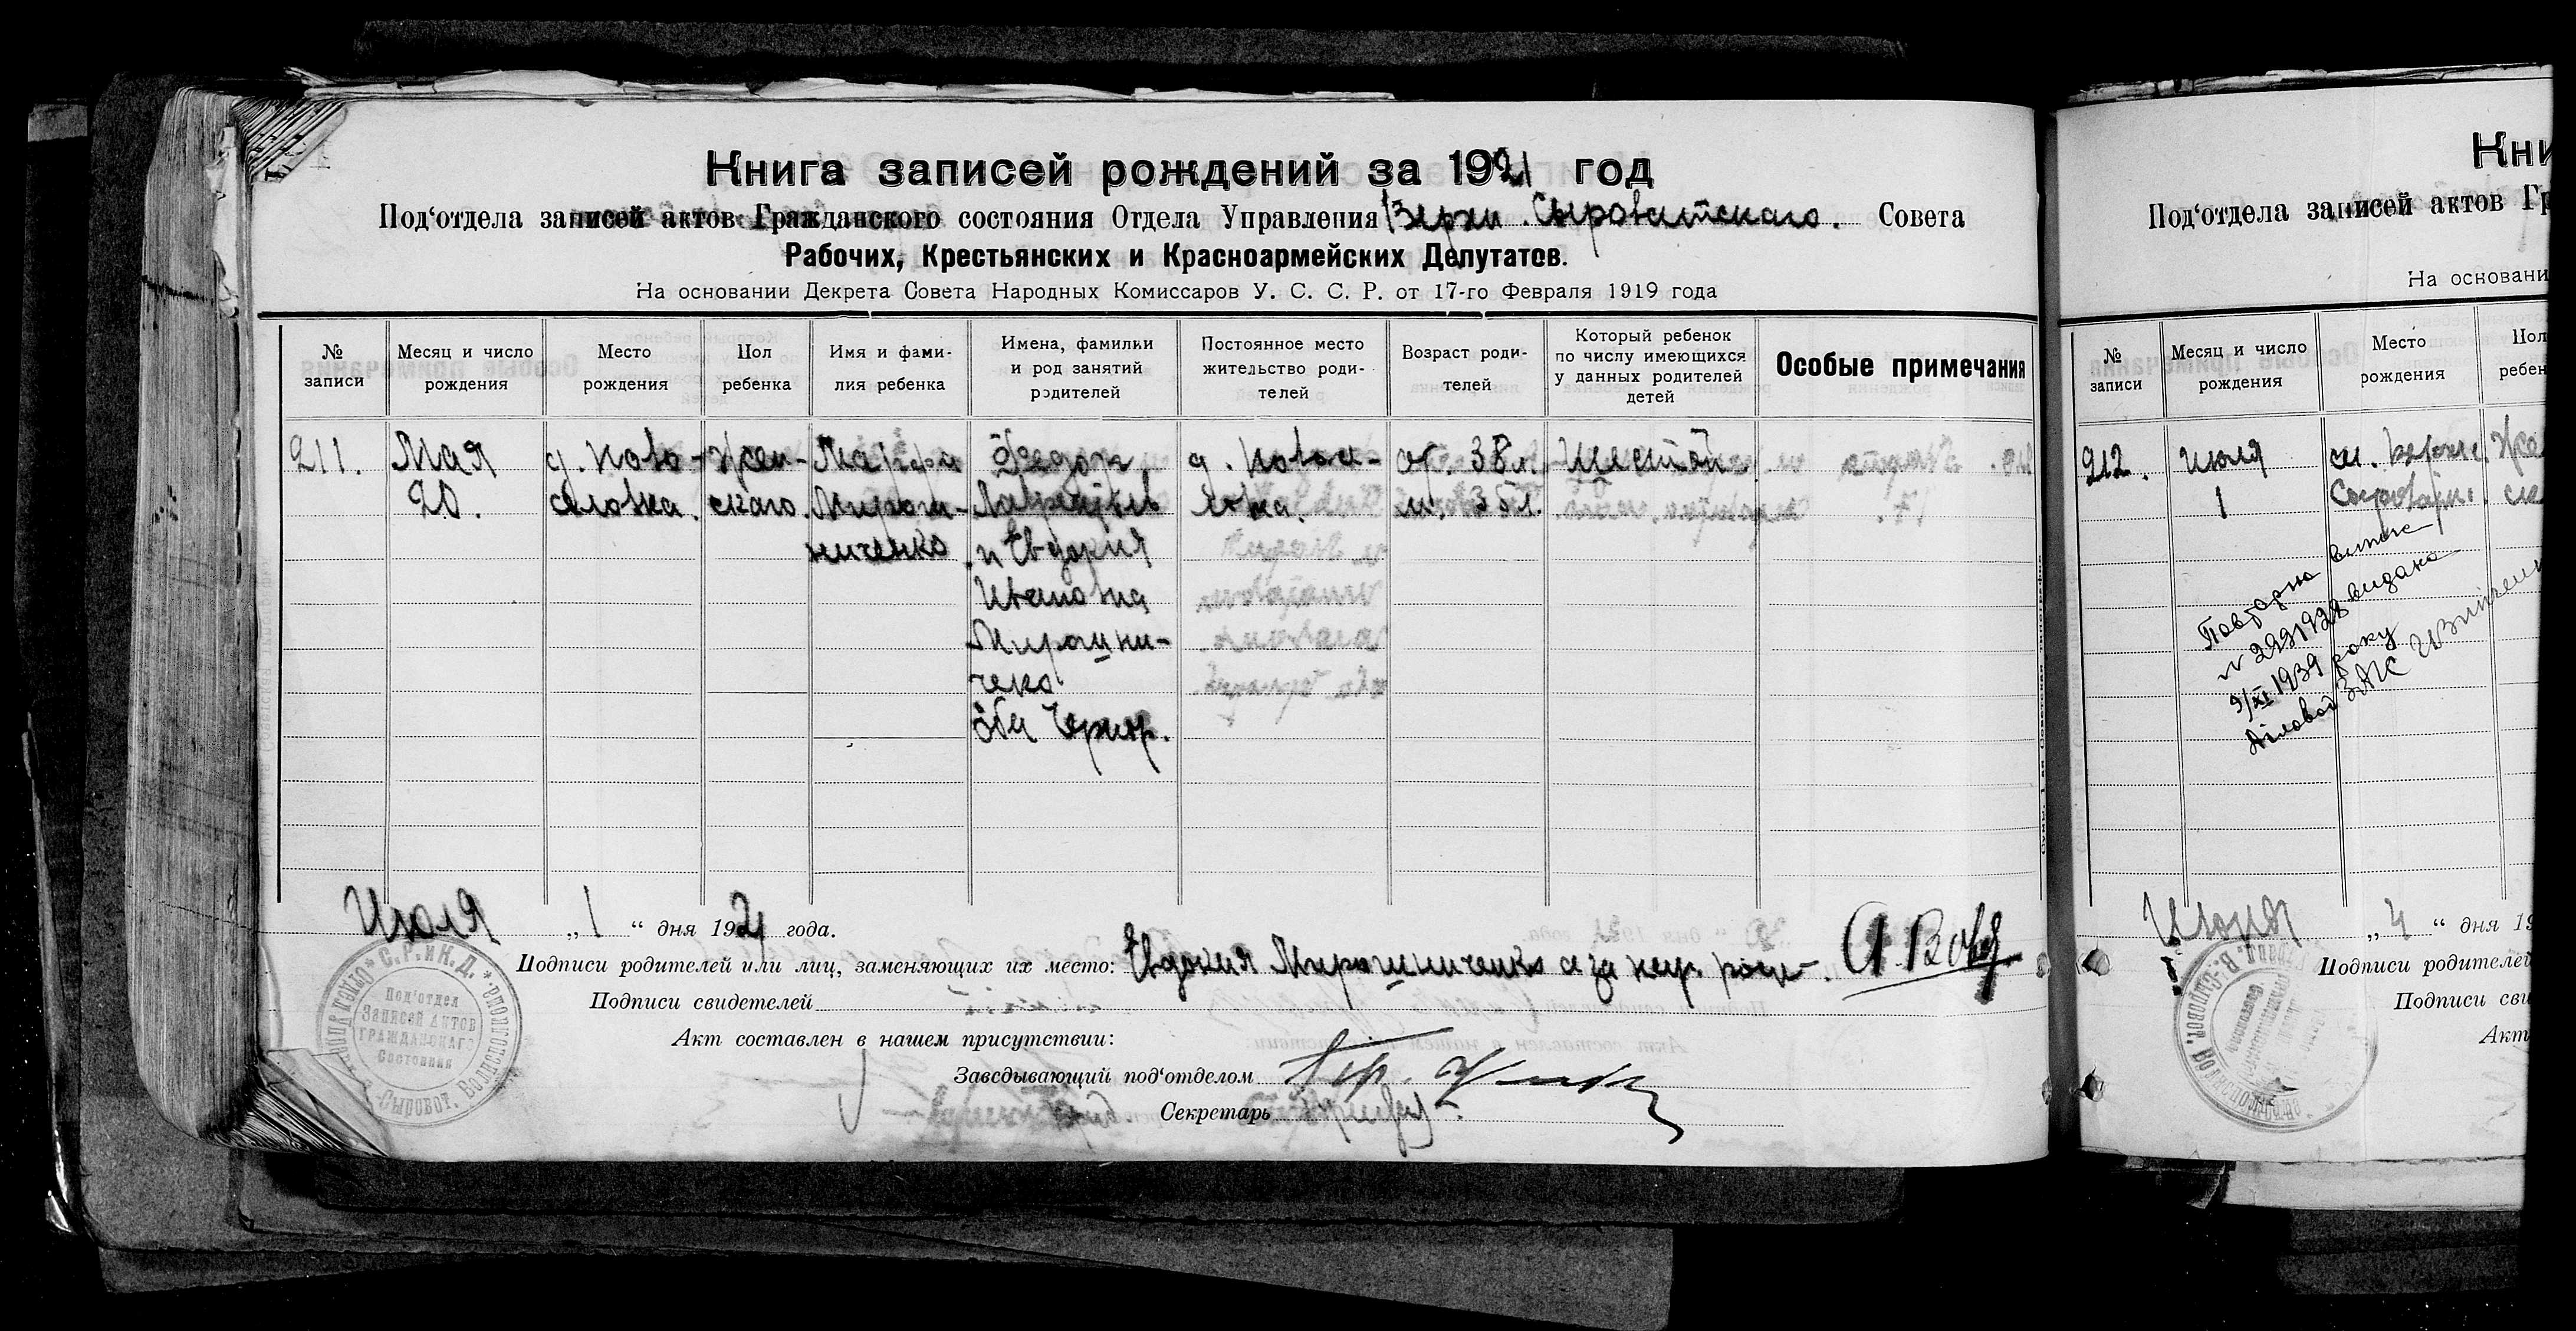 Книга записей рождений за 1921 год
Под‘отдела записей актов Гражданского состояния Отдела Управления Верхн. Сыроватскаго. Совета
Рабочих, Крестьянских и Красноармейских Депутатов.
На основании Декрета Совета Народных Комиссаров У. С. С. Р. от 17-го Февраля 1919 года
№ записи
Месяц и число рождения
Место рождения
Пол ребенка
Имя и фами-
лия ребенка
Имена, фамилии
и род занятий
родителей
Постоянное место
жительство роди-
телей
Возраст роди-
телей
Который ребенок
по числу имеющихся
у данных родителей
детей
Особые примечания
211.
Мая
20.
д. Ново-
селовка.
Жен-
скаго.
Марфа
Мирош-
ниченко
Федор
Лаврентьев
и Евдокия
Ивановна
Мирошни-
ченко
оба
д. Новосе-
ловка.
от. 38 л.
м. 35 л.
Шестой
Июля „1“ дня 1921 года.
Подписи родителей или лиц, заменяющих их место: Евдокия Мирошниченко а за негр. росп-
Подписи свидетелей
Акт составлен в нашем присутствии:
Заведывающий под‘отделом
Секретарь
С.Р. и К.Д.
Под‘отдел
Записей Актов
Гражданскаго
Состояния
Сыроват. Волисполкома
Кни
Под‘отдела записей актов Гр
На основани
№ записи
Месяц и число рождения
Место рождения
Пол
ребен
212.
Июля
1
Сыроват.
Повторно
№ 2291928 видано
9/XI 1939 року
Діловод ЗАГС
„4“ дня 19
Подписи родителей
Подписи сви
Акт